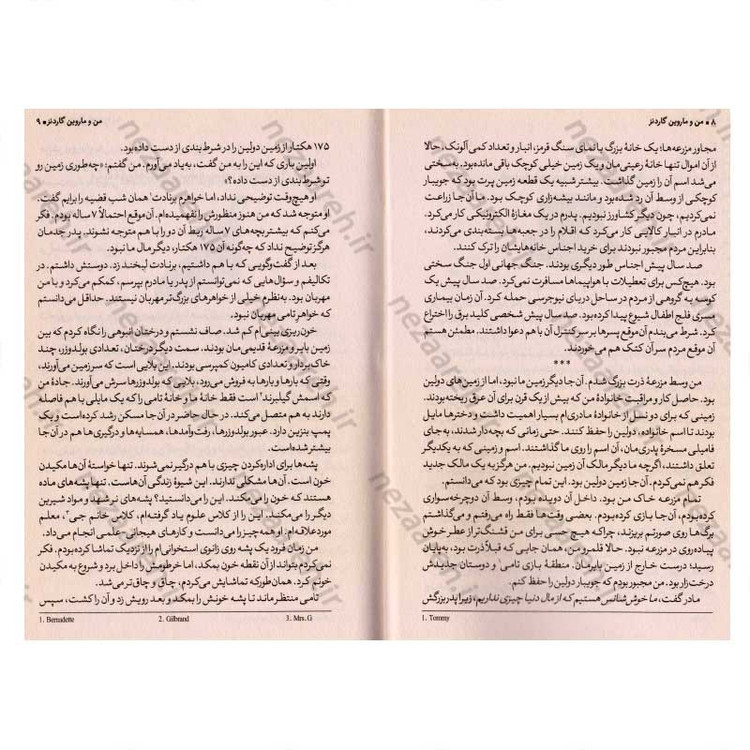 ۸ ■ من و ماروین گاردنز
مجاور مزرعه‌ها؛ یک خانهٔ بزرگ با نمای سنگ قرمز، انبار و تعداد کمی آلونک. حالا
از آن اموال تنها خانهٔ رعیتی‌مان و یک زمین خیلی کوچک باقی مانده بود. به‌سختی
می‌شد اسم آن را زمین گذاشت. بیشتر شبیه یک قطعه زمین پرت بود که جویبار
کوچکی از وسط آن رد شده بود و مانند بیشه‌زاری کوچک بود. ما آن‌جا زراعت
نمی‌کردیم، چون دیگر کشاورز نبودیم. پدرم در یک مغازهٔ الکترونیکی کار می‌کرد.
مادرم در انبار کالایی کار می‌کرد که اقلام را در جعبه‌ها بسته‌بندی می‌کردند،
بنابراین مردم مجبور نبودند برای خرید اجناس خانه‌هایشان را ترک کنند.
صد سال پیش اجناس طور دیگری بودند. جنگ جهانی اول جنگ سختی
بود. هیچ‌کس برای تعطیلات با هواپیماها مسافرت نمی‌کرد. صد سال پیش یک
کوسه به گروهی از مردم در ساحل دریای نیوجرسی حمله کرد. آن زمان بیماری
مسری فلج اطفال شیوع پیدا کرده بود. صد سال پیش شخصی کلید برق را اختراع
کرد. شرط می‌بندم آن‌موقع پسرها بر سر کنترل آن با هم دعوا داشتند. مطمئن هستم
آن موقع مردم سر آن کتک هم می‌خوردند.
***
من وسط مزرعهٔ ذرت بزرگ شدم. آن‌جا دیگر زمین ما نبود، اما از زمین‌های دولین
بود. حاصل کار و مراقبت خانوادهٔ من که بیش از یک قرن برای آن عرق ریخته بودند.
زمینی که برای دو نسل از خانوادهٔ مادری‌ام بسیار اهمیت داشت و دخترها مایل
بودند تا اسم خانواده، دولین را حفظ کنند. حتی زمانی که بچه‌دار شدند، به‌جای
فامیلی مسخرهٔ پدری‌مان، آن اسم را روی ما گذاشتند. اسم و زمینی که به یکدیگر
تعلق داشتند، اگرچه ما دیگر مالک آن زمین نبودیم. من هرگز به یک مالک جدید
فکر هم نمی‌کردم. آن‌جا زمین دولین بود. این تمام چیزی بود که می‌دانستم.
تمام مزرعه خاک من بود. داخل آن دویده بودم. وسط آن دوچرخه‌سواری
کرده بودم. آن‌جا بازی کرده بودم. بعضی وقت‌ها فقط راه می‌رفتم و می‌گذاشتم
برگ‌ها روی صورتم بریزند، چراکه هیچ حسی برای من قشنگ‌تر از عطر خوش
پیاده‌روی در مزرعه نبود. حالا قلمرو من، همان جایی که قبلاً ذرت بود، به‌پایان
رسید؛ درست خارج از زمین بایرمان. منطقهٔ بازی تامی¹ و دوستان جدیدش
درختزار بود. من مجبور بودم که جویبار دولین را حفظ کنم.
مادر گفت، ما خوش‌شانس هستیم که از مال دنیا چیزی نداریم، زیرا پدربزرگش
1. Tommy
من و ماروین گاردنز ■ ۹
۱۷۵ هکتار از زمین دولین را در شرط‌بندی از دست داده بود.
اولین باری که این را به من گفت، به‌یاد می‌آورم. من گفتم: «چه‌طوری زمین رو
تو شرط‌بندی از دست داده؟»
او هیچ‌وقت توضیحی نداد، اما خواهرم برنادت¹ همان شب قضیه را برایم گفت.
او متوجه شد که من هنوز منظورش را نفهمیده‌ام. آن موقع احتمالاً ۷ ساله بودم. فکر
می‌کنم که بیشتر بچه‌های ۷ ساله ربط آن دو را با هم متوجه نشوند. پدر جدمان
هرگز توضیح نداد که چه‌گونه آن ۱۷۵ هکتار، دیگر مال ما نبود.
بعد از گفت‌وگویی که با هم داشتیم، برنادت لبخند زد. دوستش داشتم. در
تکالیفم و سؤال‌هایی که نمی‌توانستم از پدر یا مادرم بپرسم، کمکم می‌کرد و با من
مهربان بود. به‌نظرم خیلی از خواهرهای بزرگ‌تر مهربان نیستند. حداقل می‌دانستم
که خواهر تامی مهربان نبود.
خون‌ریزی بینی‌ام کم شد. صاف نشستم و درختان انبوهی را نگاه کردم که بین
زمین بایر و مزرعهٔ قدیمی‌مان بودند. سمت دیگر درختان، تعدادی بولدوزر، چند
خاک‌بردار و تعدادی کامیون کمپرسی بودند. این بلایی است که سر زمین می‌آورند،
وقتی که بارها و بارها به فروش می‌رود، بلایی که بولدوزرها سرش می‌آورند. جادهٔ من
که اسمش گیلبرند² است فقط خانهٔ ما و خانهٔ تامی را که یک مایلی با هم فاصله
دارند به هم متصل می‌کند. در حال حاضر در آن‌جا مسکن رشد کرده است و یک
پمپ بنزین دارد. عبور بولدوزرها، رفت‌وآمدها، همسایه‌ها و درگیری‌ها هم در آن‌جا
بود.
پشه‌ها برای اداره‌کردن چیزی با هم درگیر نمی‌شوند. تنها خواستهٔ آن‌ها مکیدن
خون است. آن‌ها مشکلی ندارند. این شیوهٔ زندگی آن‌هاست. تنها پشه‌های ماده
هستند که خون را می‌مکند. این را می‌دانستید؟ پشه‌های نر شهد و مواد شیرین
دیگر را می‌مکند. این را از کلاس علوم یاد گرفته‌ام، کلاس خانم جی³، معلم
موردعلاقه‌ام. او همه‌چیز را می‌دانست و کارهای هیجانی - علمی انجام می‌داد.
من زمان فرود یک پشه روی زانوی استخوانی‌ام را از نزدیک تماشا کرده بودم. فکر
نمی‌کردم بتواند از آن نقطه خون بمکد، اما خرطومش را داخل برد و شروع به مکیدن
خونم کرد. همان‌طور که تماشایش می‌کردم، چاق و چاق‌تر می‌شد.
تامی منتظر ماند تا پشه خونش را بمکد و بعد رویش زد و آن را کشت، سپس
1. Bernadette
2. Gilbrand
3. Mrs. G
nezaareh.ir